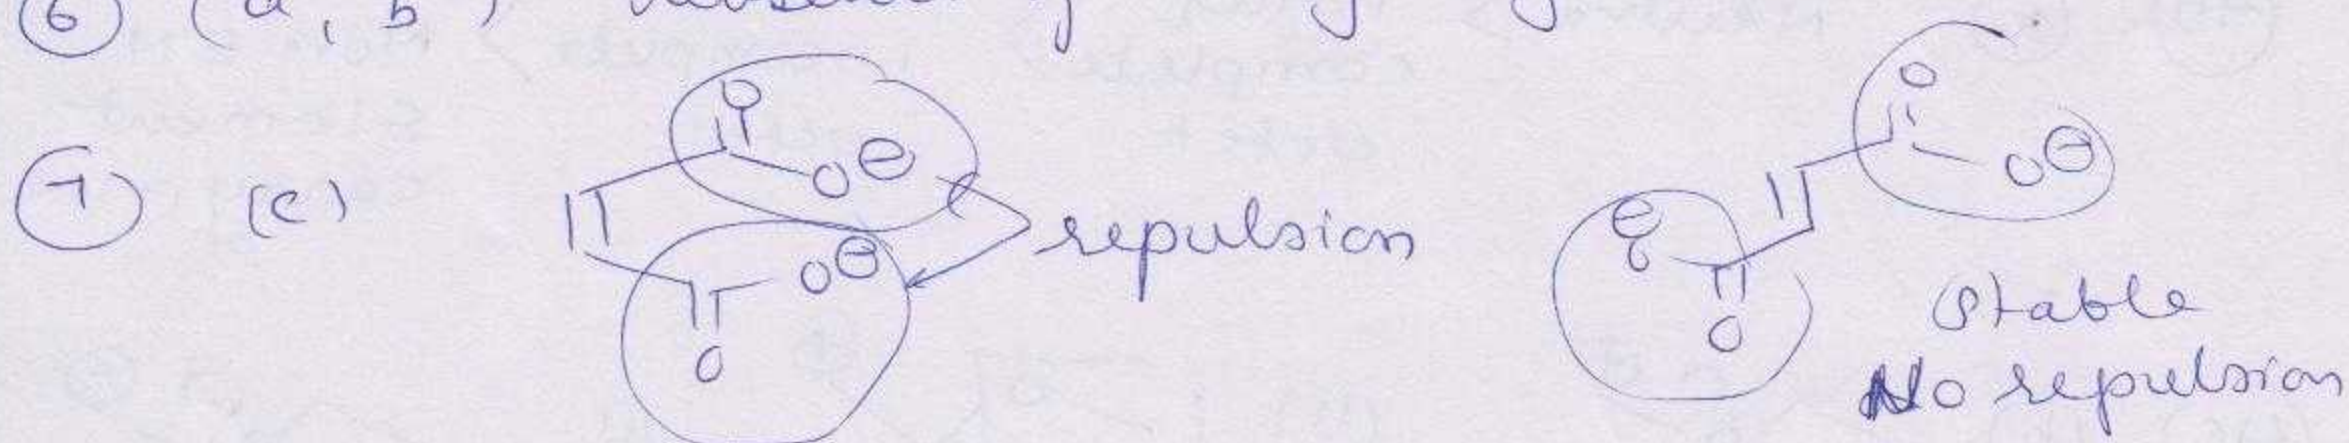 6 (a, b)
7 (c) O O⊖ repulsion O⊖ O
O O⊖ ⊖O O Stable
No repulsion